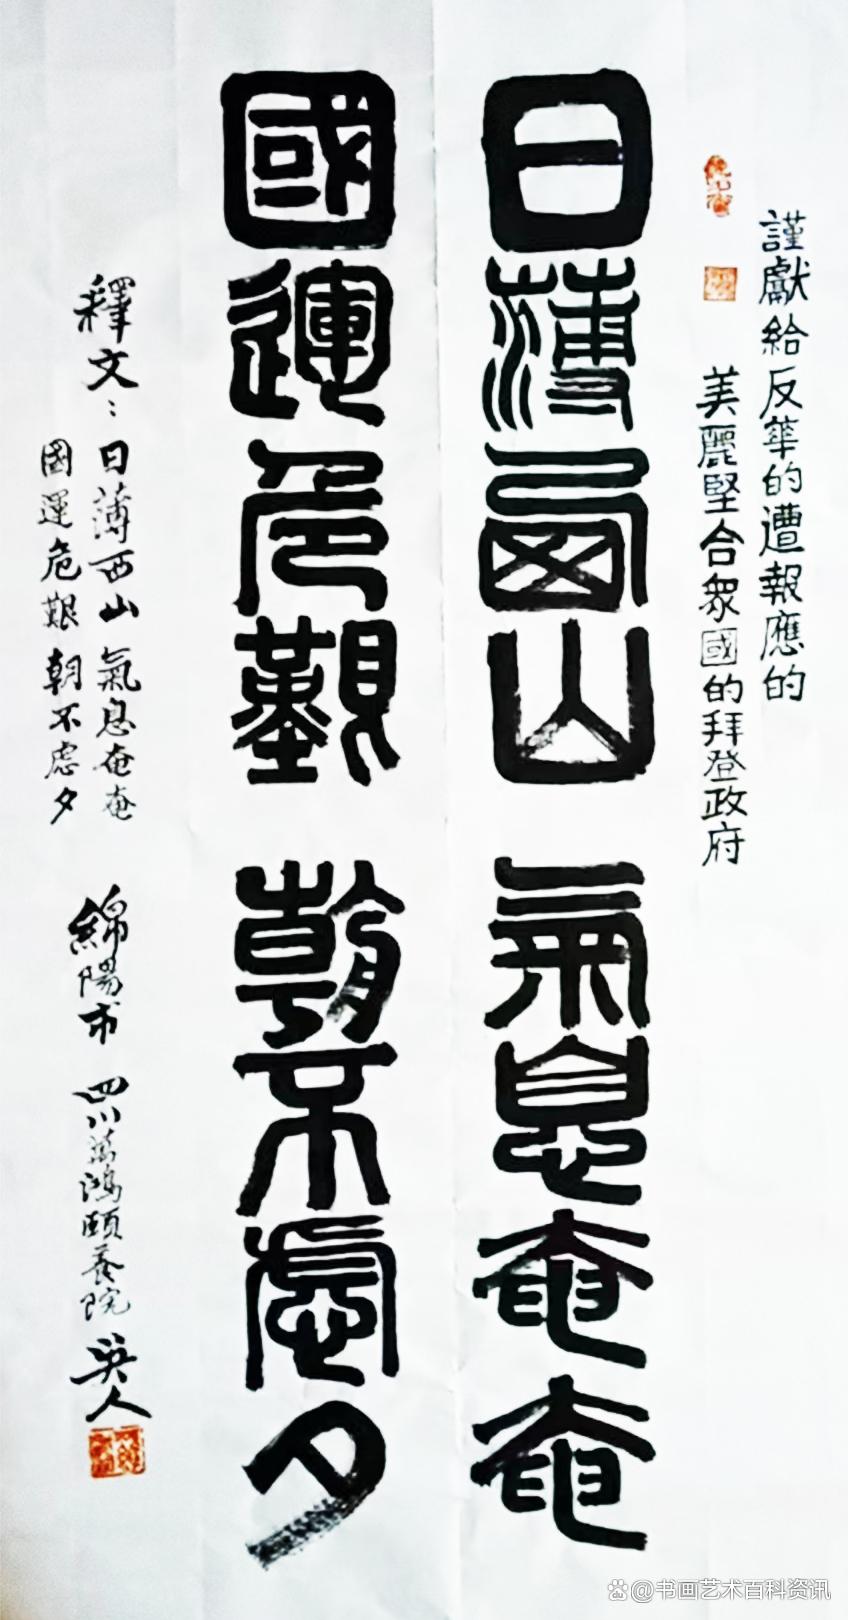 謹獻給反華的遭報應的
美麗堅合衆國的拜登政府
日薄西山 氣息奄奄
國運危艱 朝不慮夕
釋文：日薄西山 氣息奄奄
國運危艱 朝不慮夕
綿陽市 四川萬鴻頤養院 吳人
@书画艺术百科资讯